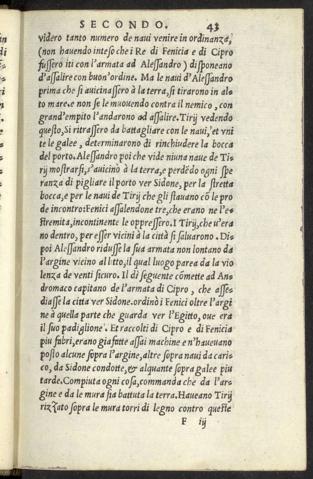 SECONDO. 43
videro tanto numero de naui venire in ordinanza,
(non hauendo inteso che i Re di Fenicia e di Cipro
fussero iti con l'armata ad Alessandro) disponeano
d'assalire con buon'ordine. Ma le naui d'Alessandro
prima che si auicinassero à la terra, si tirarono in al
to mare e non se le mouuendo contra il nemico, con
grand'empito l'andarono ad assalire. Tirij vedendo
questo, Si ritrassero da battagliare con le naui, et vni
te le galee, determinarono di rinchiudere la bocca
del porto. Alessandro poi che vide niuna naue de Ti
rij mostrarsi, s'auicinò à la terra, e perdẽdo ogni spe
ranza di pigliare il porto ver Sidone, per la stretta
bocca, e per le naui de Tirij che gli stauano cõ le pro
de incontro: Fenici assalendone tre, che erano ne l'e-
stremità, incontinente le oppressero. I Tirij, che v'era
no dentro, per esser vicini à la città si saluarono. Di
poi Alessandro ridusse la sua armata non lontano da
l'argine vicino al lito, il qual luogo parea da la vio
lenza de venti sicuro. Il dì seguente cõmette ad An
dromaco capitano de l'armata di Cipro, che asse-
diasse la citta ver Sidone. ordinò i Fenici oltre l'argi
ne à quella parte che guarda ver l'Egitto, oue era
il suo padiglione. Et raccolti di Cipro e di Fenicia
piu fabri, erano gia fatte assai machine e n'haueuano
posto alcune sopra l'argine, altre sopra naui da cari-
co, da Sidone condotte, & alquante sopra galee piu
tarde. Compiuta ogni cosa, commanda che da l'ar-
gine e da le mura sia battuta la terra. Haueano Tirij
rizzato sopra le mura torri di legno contro queste
F iij